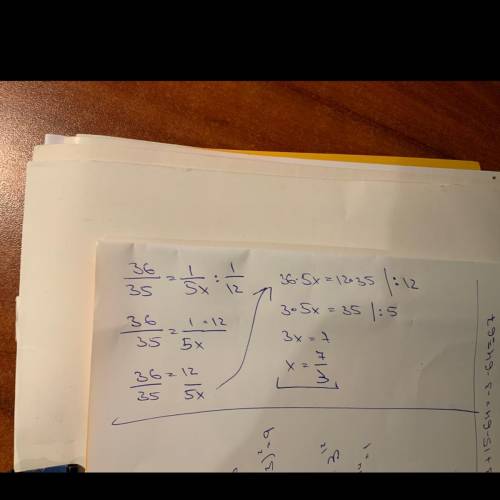 36/35 = 1/5x : 1/12
36/35 = 1·12/5x
36/35 = 12/5x
36·5x=12·35 |:12
3·5x=35 |:5
3x=7
x=7/3